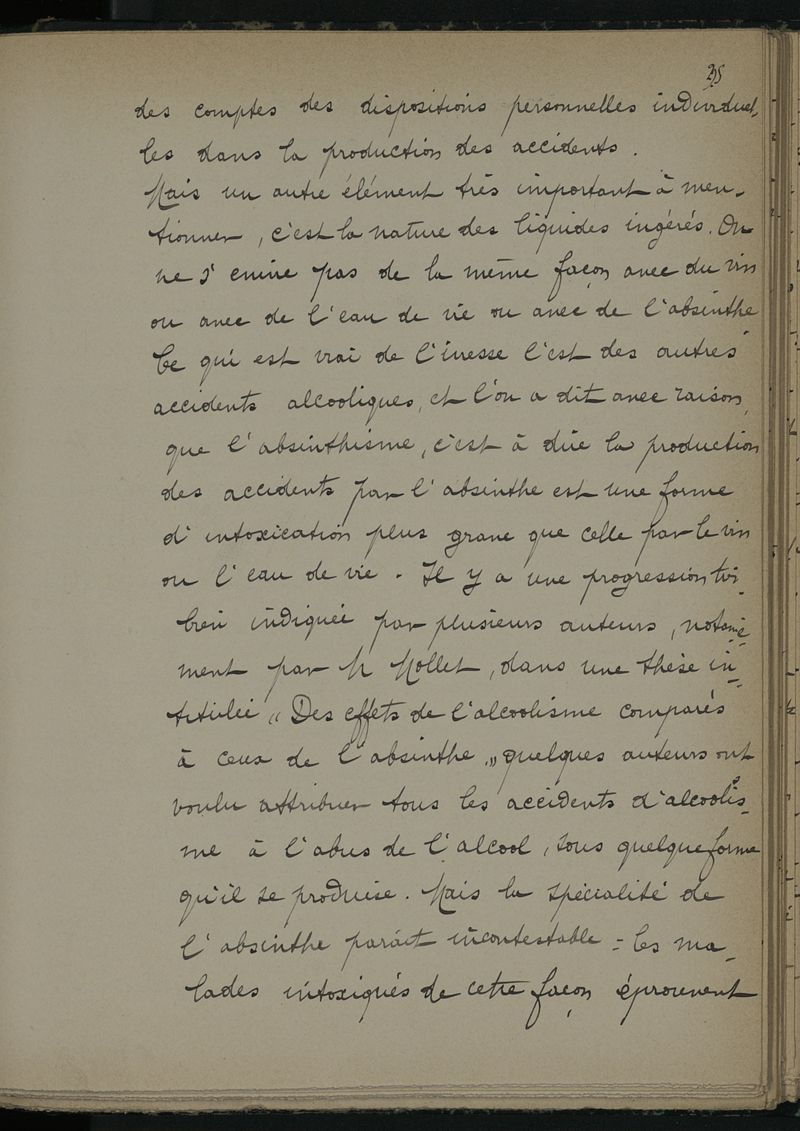 des comptes des dispositions personnelles individuel-
les dans la production des accidents.
Mais un autre élément très important à men-
tionner, c'est la nature des liquides ingérés. On
ne s'enivre pas de la même façon avec du vin
ou avec de l'eau de vie ou avec de l'absinthe
Ce qui est vrai de l'ivresse l'est des autres
accidents alcooliques, et l'on a dit avec raison,
que l'absinthisme, c'est à dire la production
des accidents par l'absinthe est une forme
d'intoxication plus grave que celle par le vin
ou l'eau de vie. Il y a une progression très
bien indiquée par plusieurs auteurs, notam-
ment par M Mollet, dans une thèse in-
titulée „ Des effets de l'alcoolisme comparés
à ceux de l'absinthe „ quelques auteurs ont
voulu attribuer tous les accidents d'alcoolis-
me à l'abus de l'alcool, sous quelque forme
qu'il se produise. Mais la spécialité de
l'absinthe parait incontestable = les ma-
lades intoxiqués de cette façon éprouvent